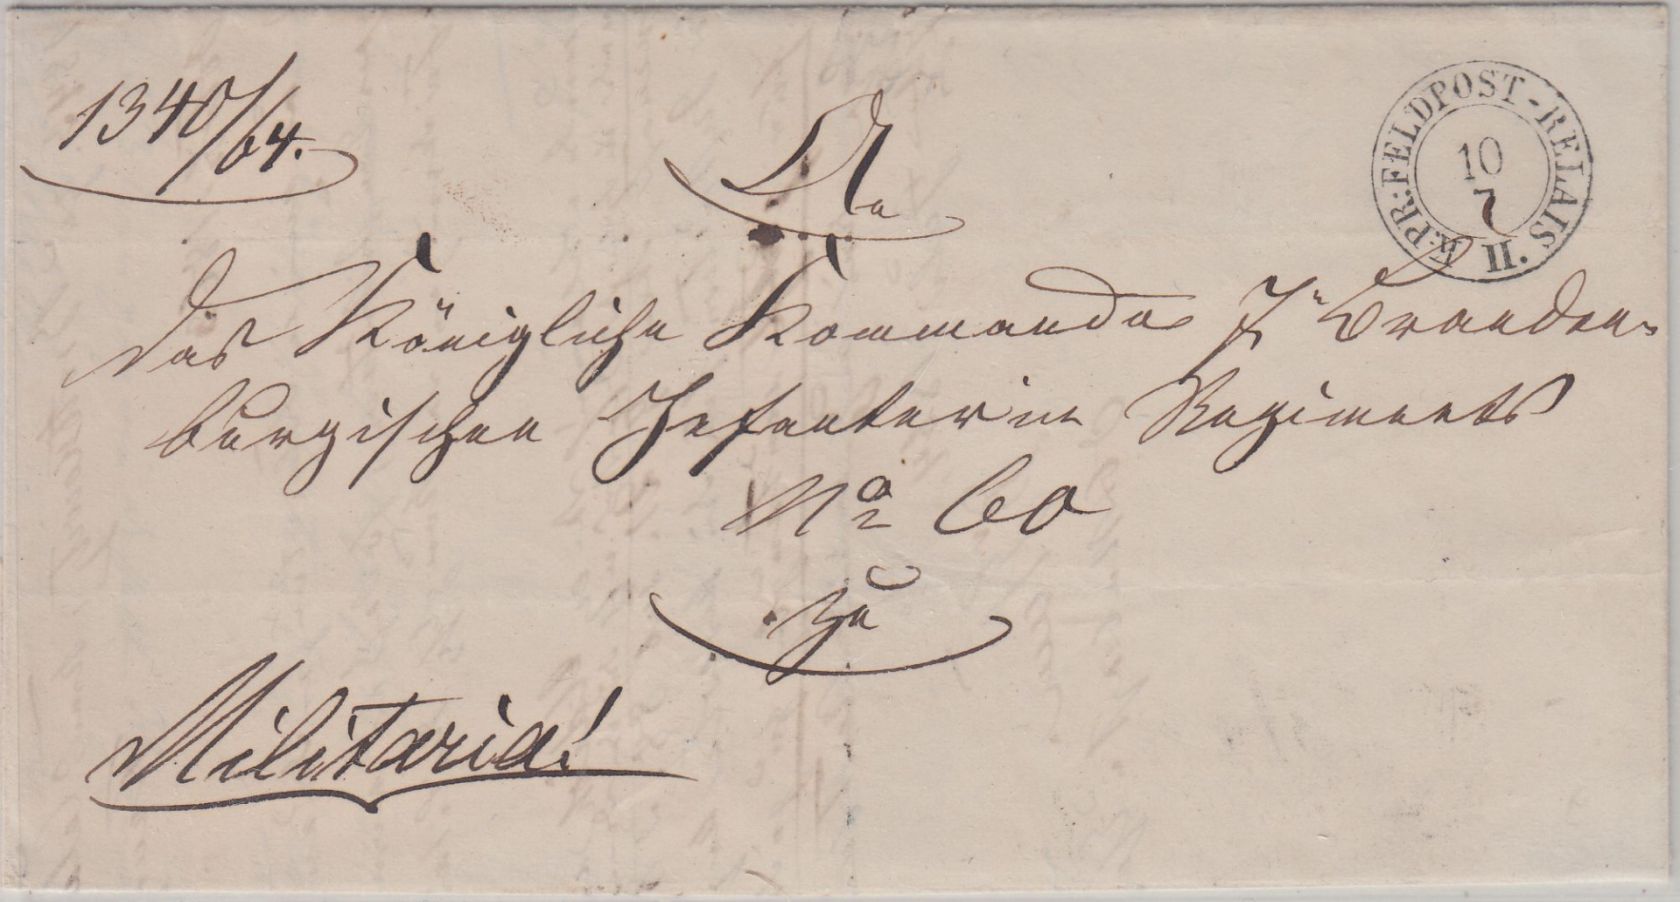 1340/64.
K:PR:FELDPOST-RELAIS II.
10
7
An
das Königliche Kommando 7n Branden-
burgischen Infanterie Regiments
No 60
zu
Militaria!